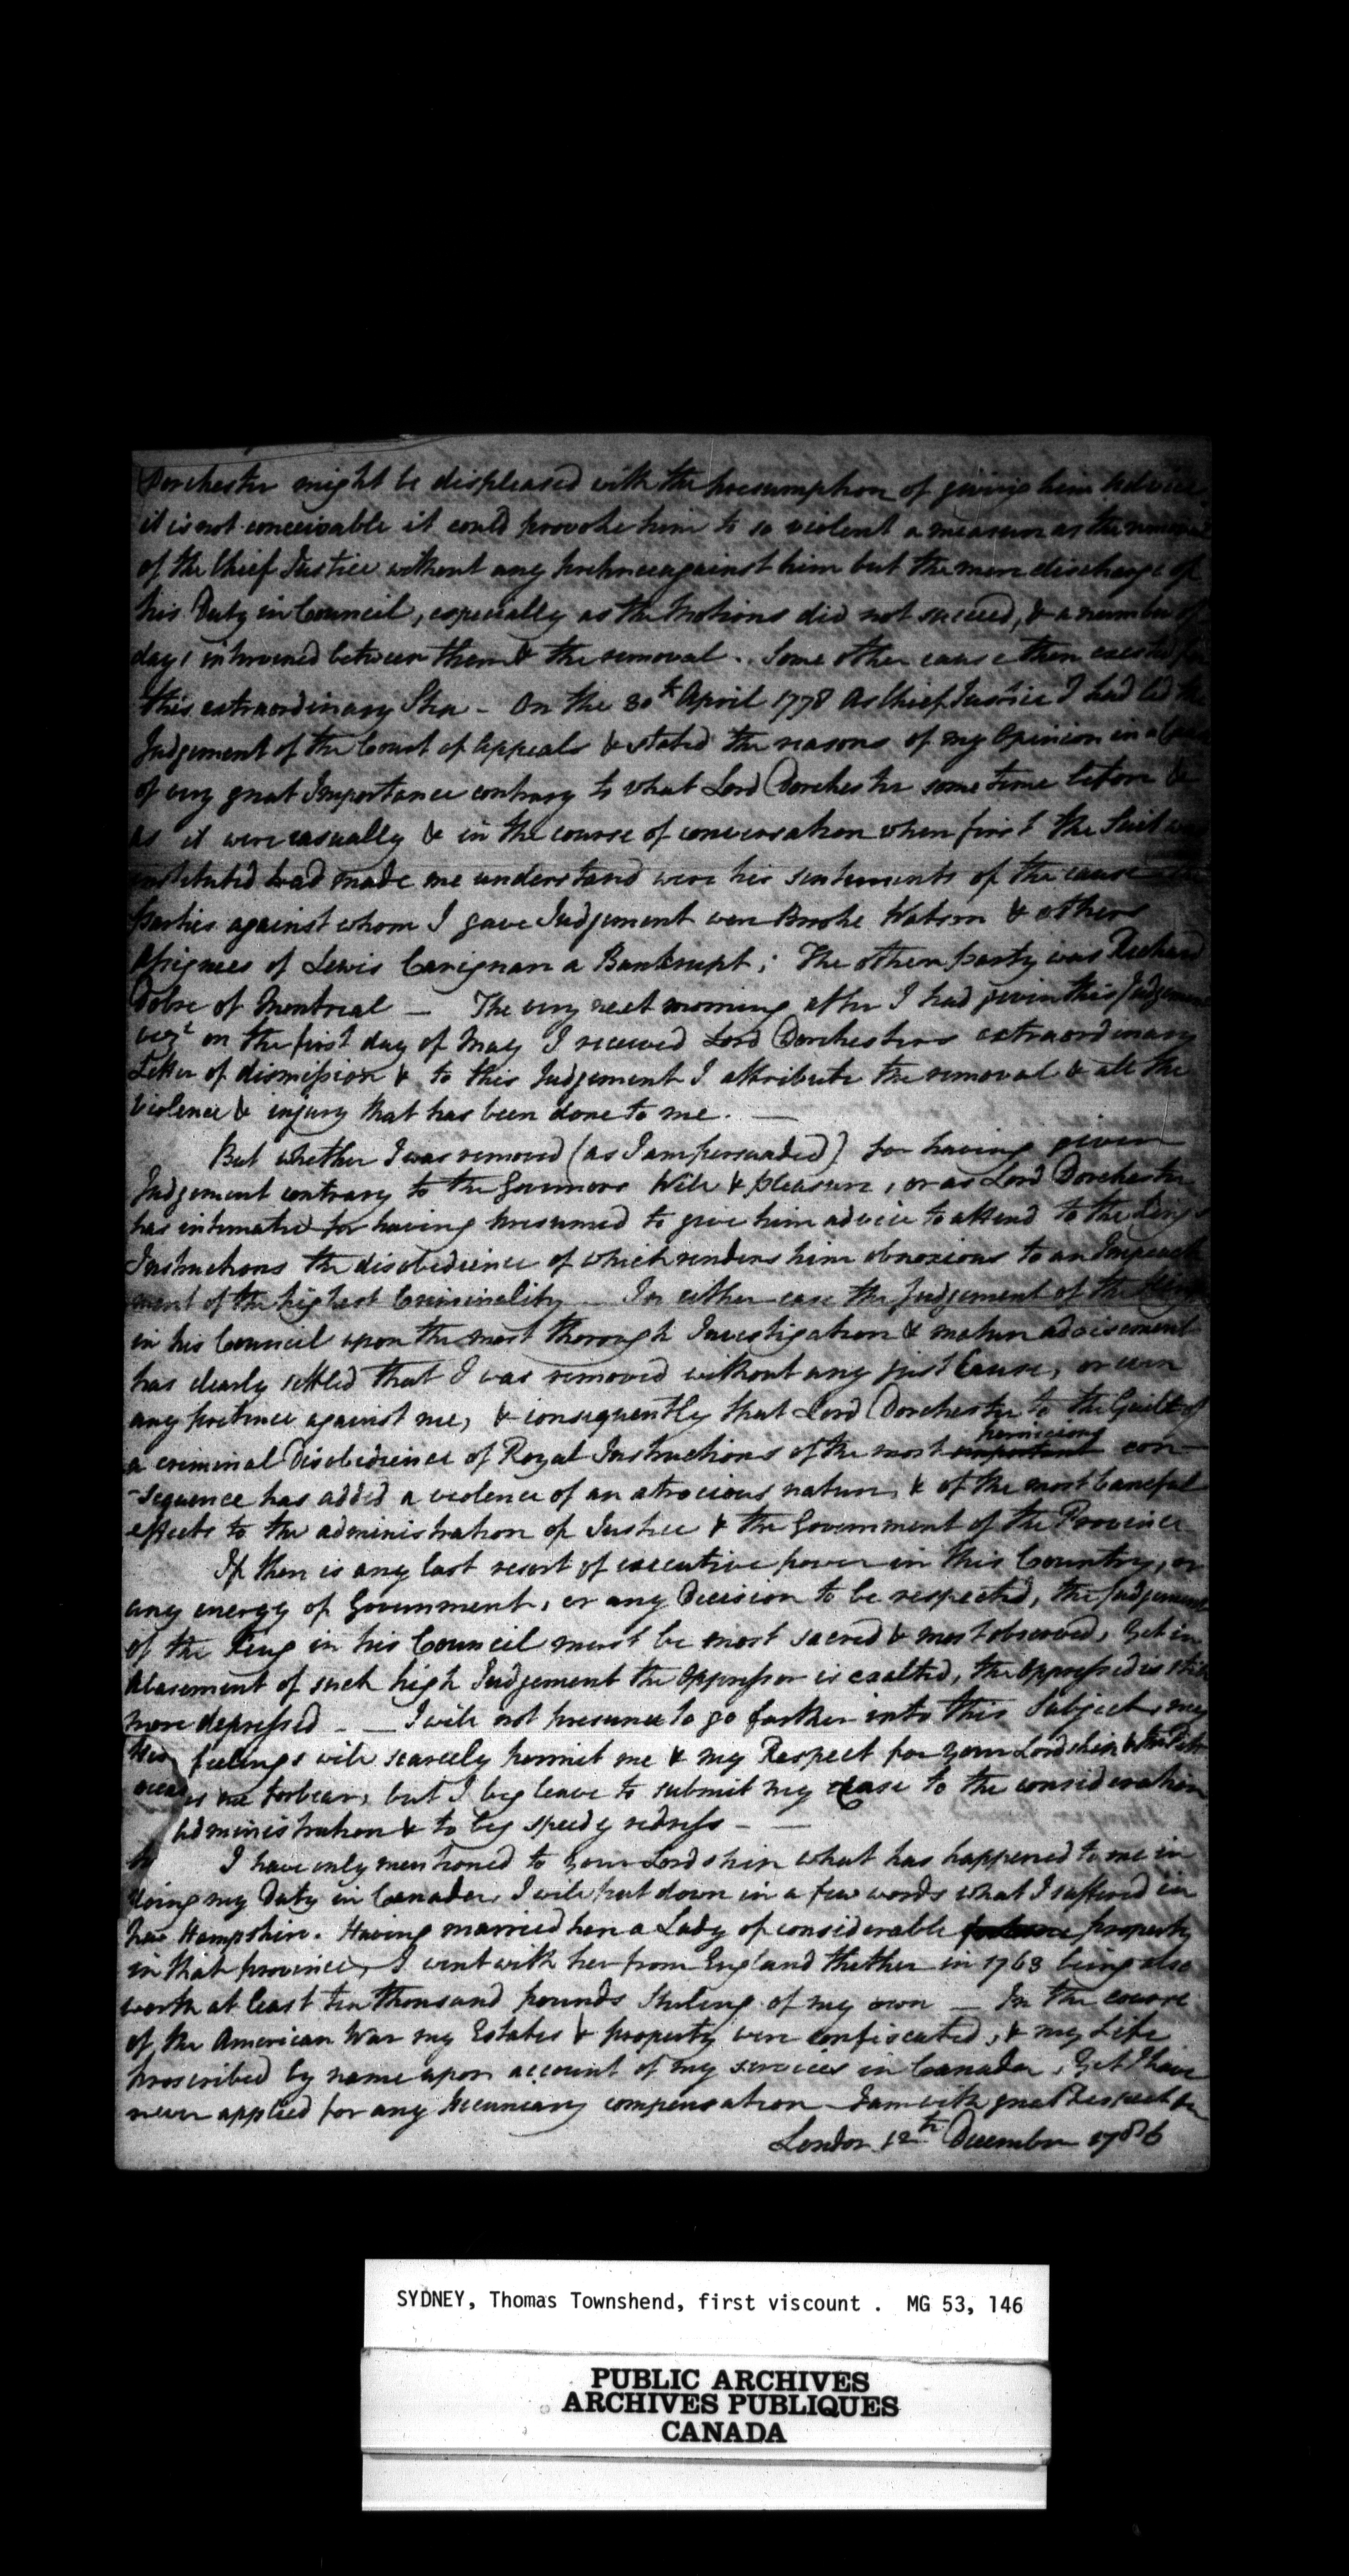 Dorchester might be displeased with the presumption of giving him advice,
it is not conceivable it could provoke him to so violent a measure as the removal
of the Chief Justice without any pretence against him but the mere discharge of
his Duty in Council, especially as the Motions did not succeed, & a number of
days intervened between them & the removal. Some other cause then existed for
this extraordinary Step - On the 30th April 1778 As Chief Justice I had led the
Judgement of the Court of Appeals & stated the reasons of my Opinion in a Cause
of very great Importance contrary to what Lord Dorchester some time before &
as it were casually & in the course of conversation when first the Suit was
instituted had made me understand were his sentiments of the cause
parties against whom I gave Judgement were Brooke Watson & others
Assignees of Lewis Carignan a Bankrupt; The other party was Richard
Dobie of Montreal — The very next morning after I had given this Judgement
vizt on the first day of May I received Lord Dorchesters extraordinary
Letter of dismission & to this Judgement I attribute the removal & all the
violence & injury that has been done to me. —
But whether I was removed (as I am persuaded) for having given
Judgement contrary to the Governors Will & pleasure, or as Lord Dorchester
has intimated for having presumed to give him advice to attend to the Kings
Instructions the disobedience of which renders him obnoxious to an Impeach
ment of the highest Criminality — In either case the Judgement of the King
in his Council upon the most thorough Investigation & mature advisement
has clearly settled that I was removed without any just Cause, or even
any pretence against me, & consequently that Lord Dorchester to the Guilt of
pernicious
a criminal Disobedience of Royal Instructions of the most important con-
-sequence has added a violence of an atrocious nature, & of the most baneful
effects to the administration of Justice & the Government of the Province
If there is any last resort of executive power in this Country, or
any energy of Government, or any Decision to be respected, the Judgement
of the King in his Council must be most sacred & most observed, Yet in
Abasement of such high Judgement the Oppressor is exalted, the oppressed is still
more depressed — I will not presume to go farther into this Subject, my
feelings will scarcely permit me & my Respect for your Lordship &
me forbear, but I beg leave to submit my Case to the consideration
Administration & to beg speedy redress —
I have only mentioned to Your Lordship what has happened to me in
doing my Duty in Canada, I will put down in a few words what I suffered in
New Hampshire. Having married here a Lady of considerable fortune property
in that province, I went with her from England thether in 1763 being also
worth at least ten thousand pounds Sterling of my own — In the course
of the American War my Estates & property were confiscated, & my Life
proscribed by name upon account of my services in Canada, Yet I have
never applied for any pecuniary compensation — I am with great Respect &c
London 12th December 1786
SYDNEY, Thomas Townshend, first viscount . MG 53, 146
PUBLIC ARCHIVES
ARCHIVES PUBLIQUES
CANADA